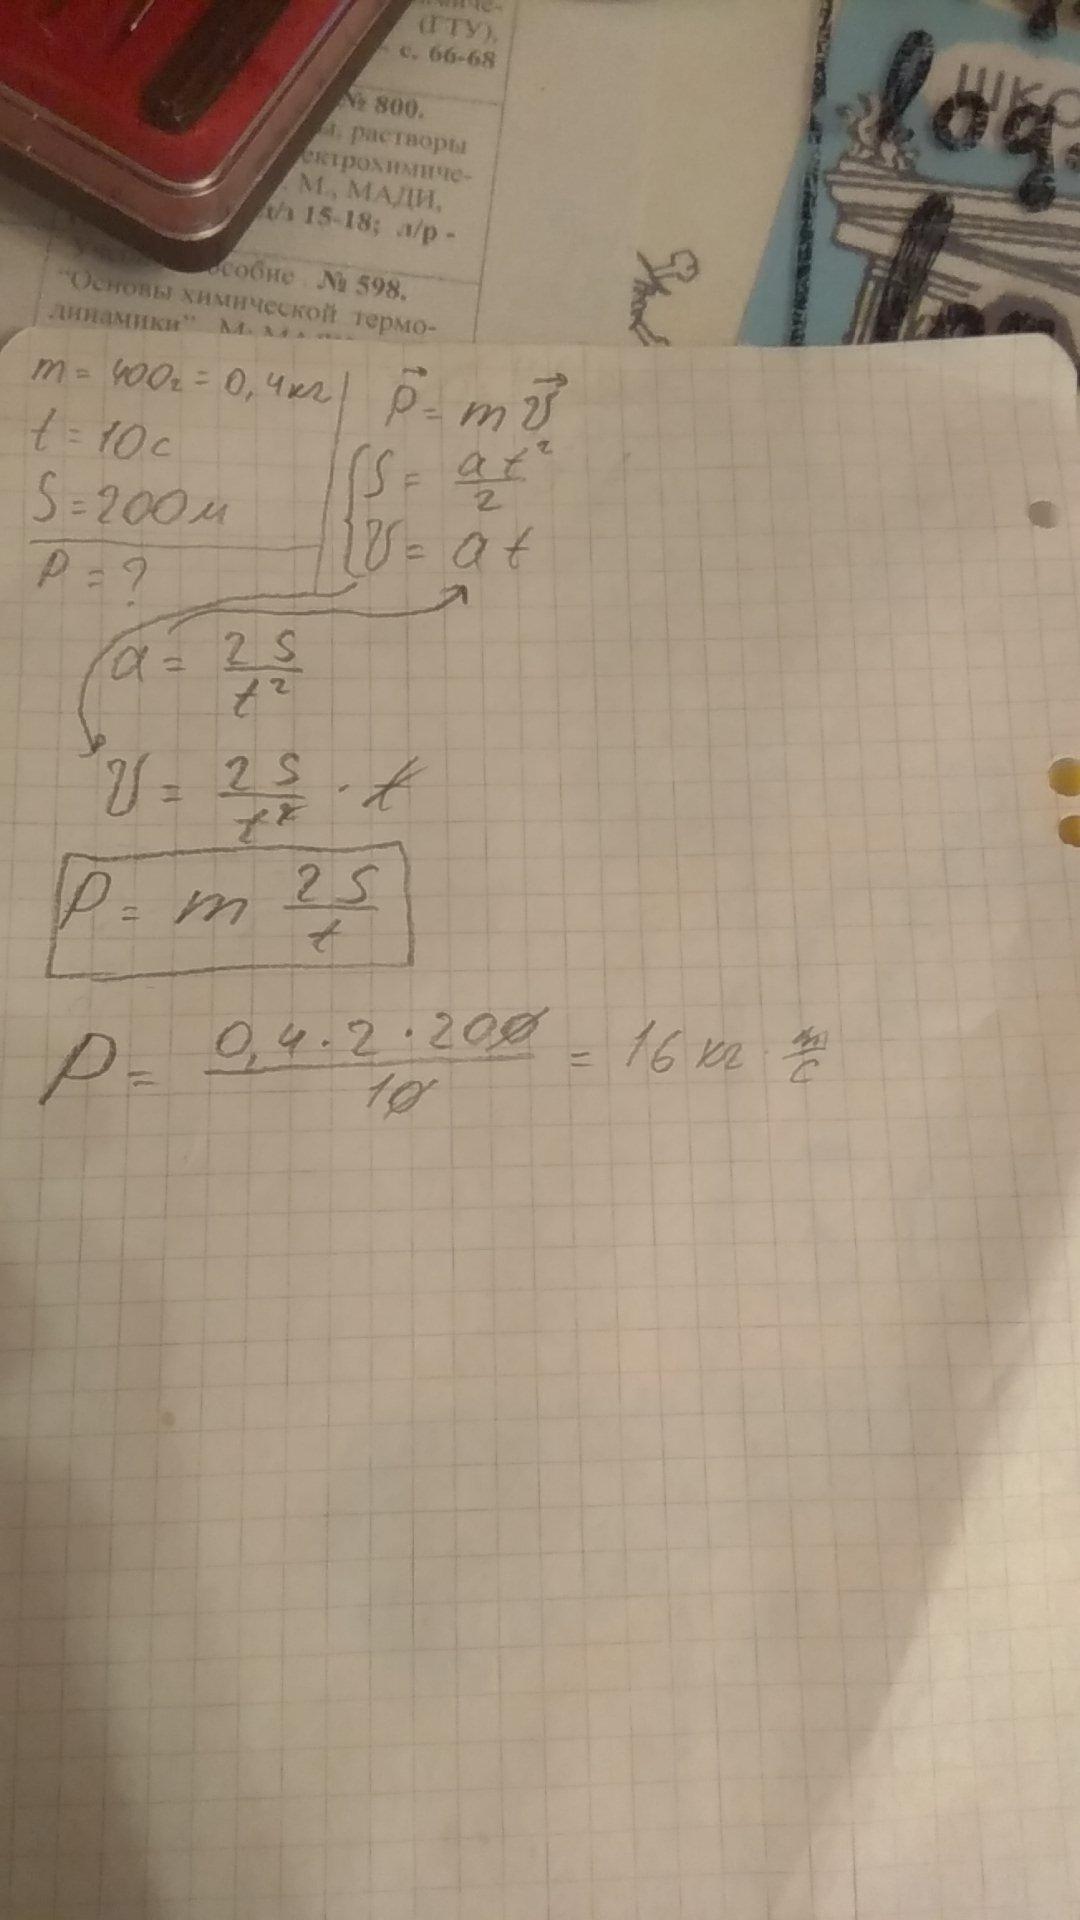 (ГТУ),
с. 66-68
№ 800.
растворы
М., МАДИ,
15-18; л/р -
№ 598.
"Основы химической термо-
динамики"
ШКО
m = 400г = 0,4кг
t = 10с
S = 200м
P = ?
p⃗ = m v⃗
S = at²/2
v = at
a = 2S/t²
v = 2S/t² · t
P = m 2S/t
P = 0,4·2·200/10 = 16 кг · м/с